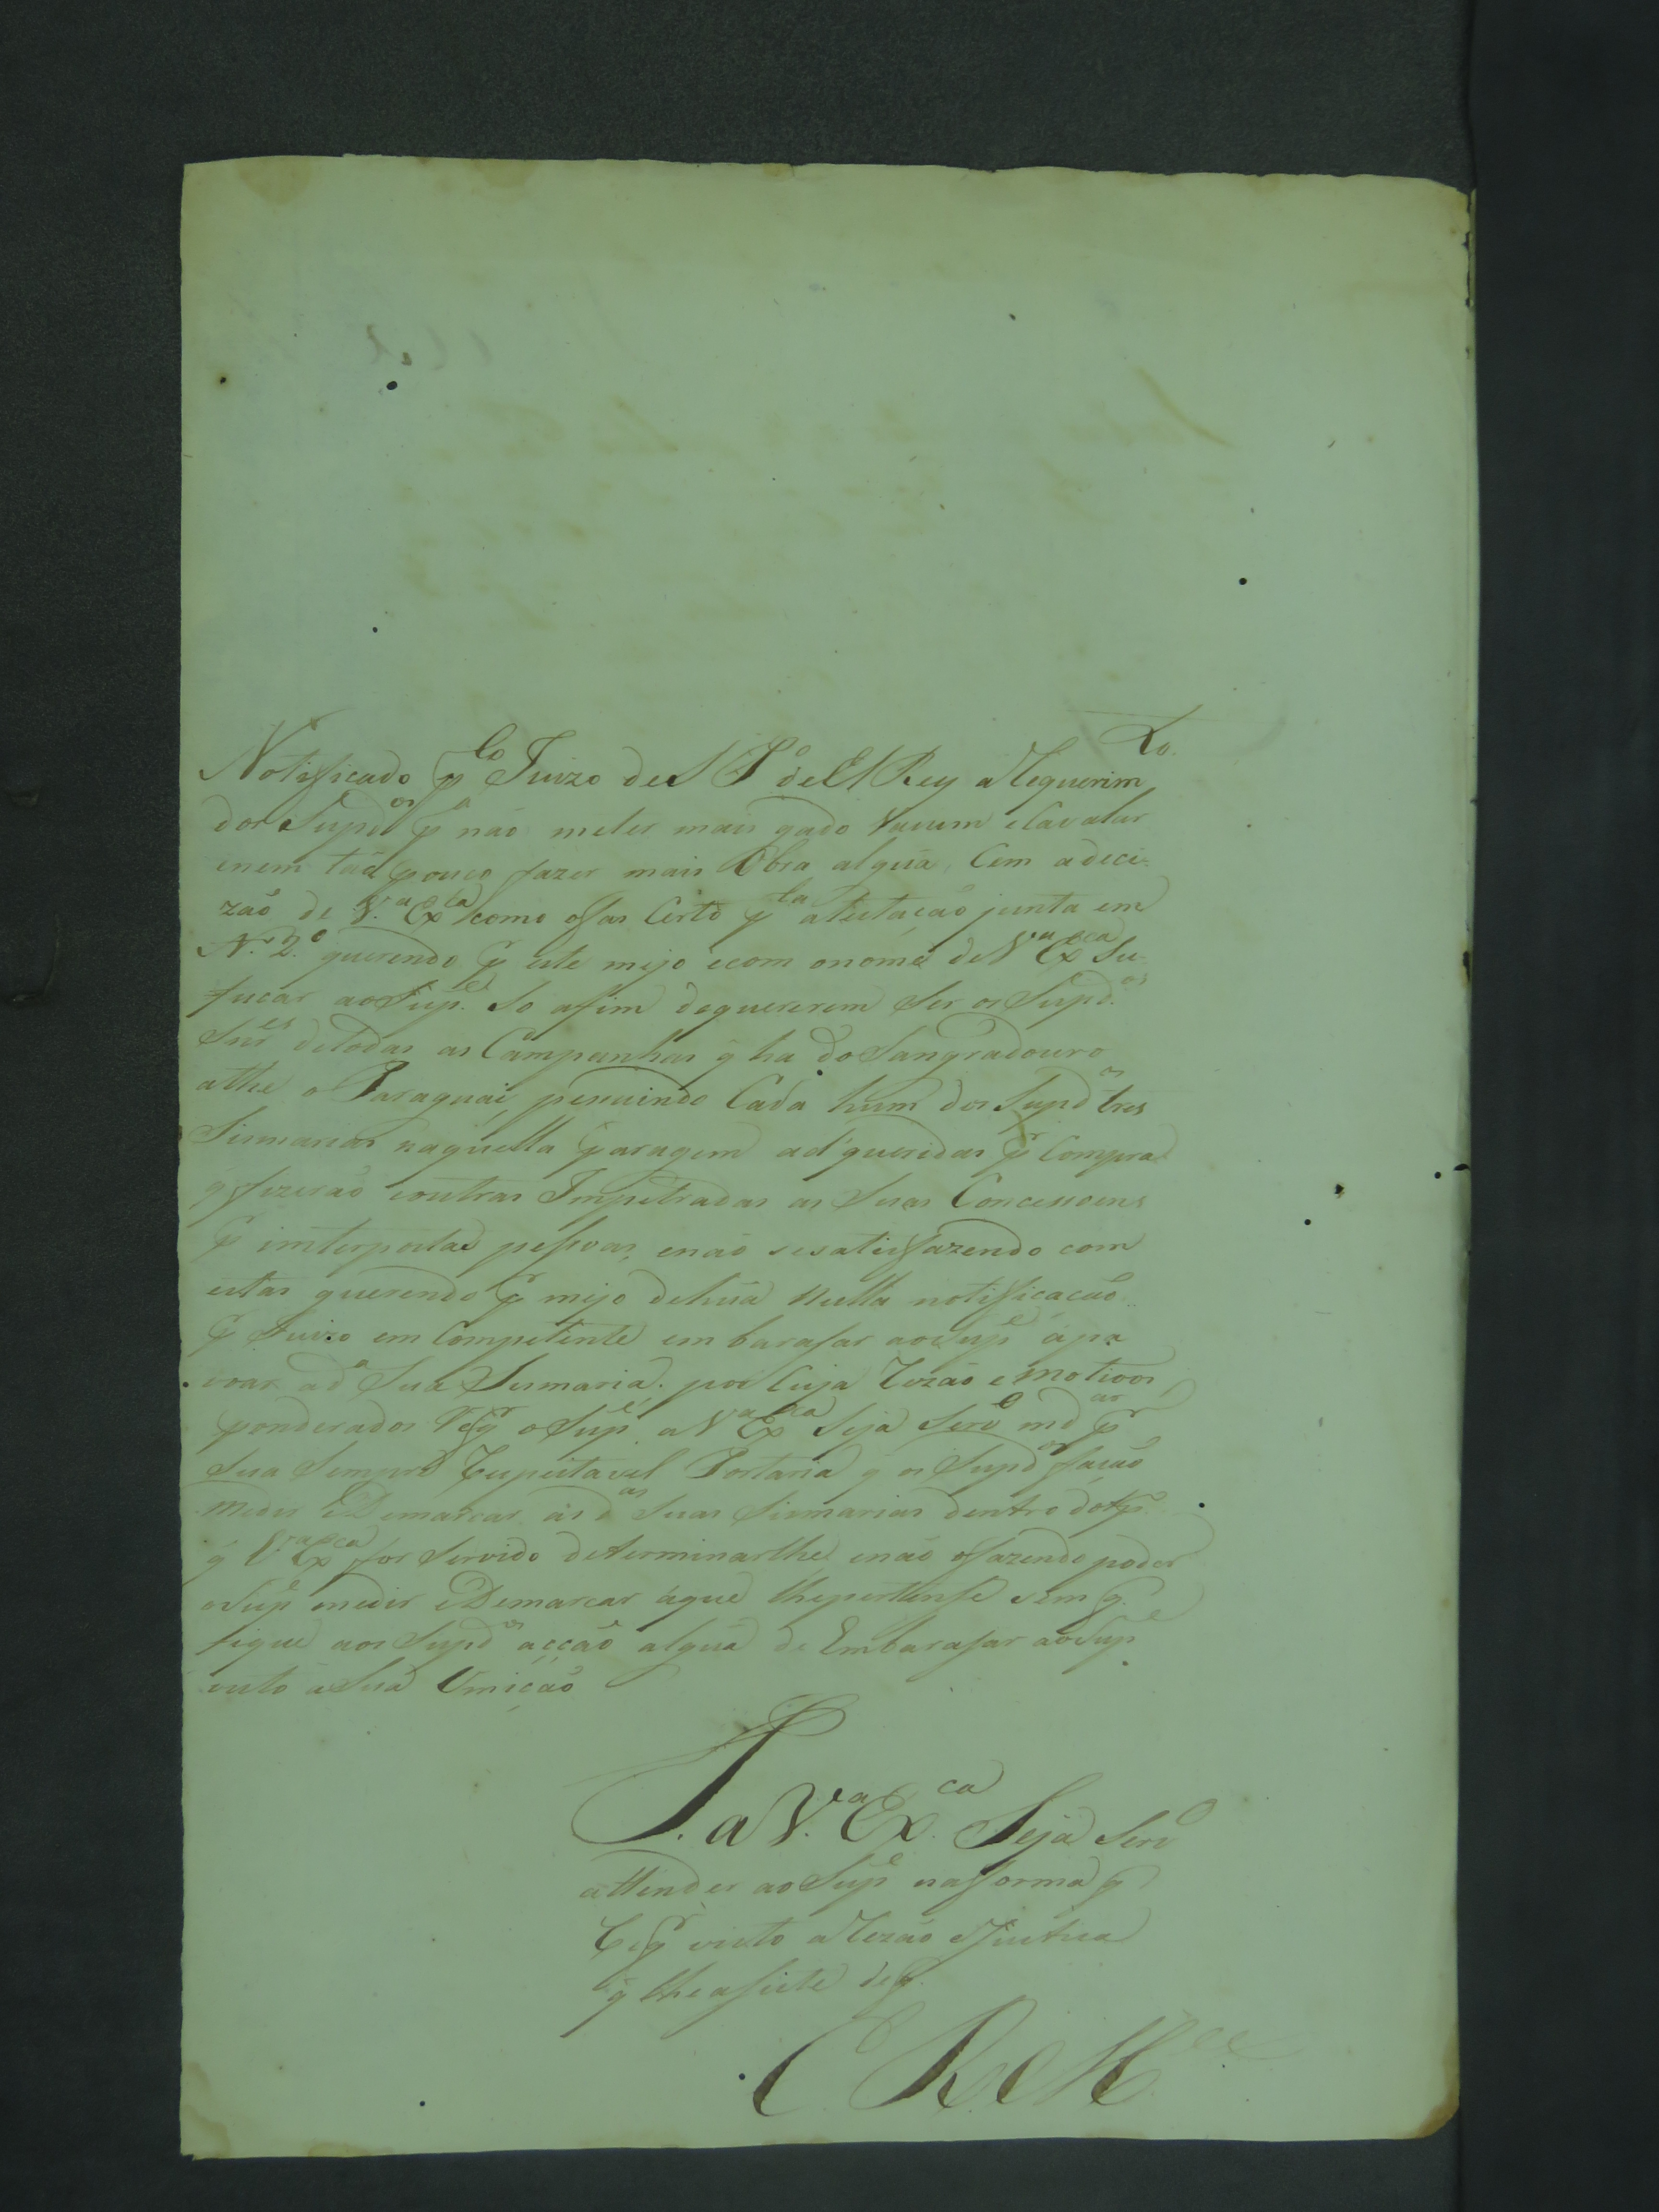 Notificado p.lo Juizo de S P.o de El Rey a Requerim.to
dos Supd.os p.a não meter mais gado Vacum e Cavalar
e nem tão pouco fazer mais Obra algũa, Cem a deci=
zão de V.a Ex.ca como o fas Certo p.la atestação junta em
N.o 2.o querendo p.r este mejo e com o nome de V.a Ex.ca Su-
fucar ao Sup.e So afim de quererem Ser os Supd.os
Snr.es de todas as Campanhas q̃ ha do Sangradouro
athe o Paraguai, pesuindo Cada hum dos Supd.os tres
Sismarias naquella paragem adqueridas p.r Compra
q̃ fizerão e outras Impetradas as Suas Concessoens
p.r imterpostas pessoas, e não se satisfazendo com
estas querendo p.r mejo de hũa Nulla notificacão
p.r Juizo em Competente em barasar ao Sup.e a po
voar a d.a Sua Sismaria. por Cuja Rezão e motivos
ponderados Req.r o Sup.e a V.a Ex.ca Seja Serv.o md.ar p.r
Sua Sempre Respeitavel Portaria q̃ os Supd.os facão
medir e Demarcar as d.as Suas Sismarias dentro do tp.o
q̃ V.a Ex.ca for Servido determinar lhe, e não o fazendo poder
o Sup.e medir e Demarcar a que lhe pertense sem q.
fique aos Supd.os acção algũa de Embarasar ao Sup.e
visto a Sua Omicão
P. a V.a Ex.ca Seja Serv.o
attender ao Sup.e na forma q̃
Req.r visto a Rezão e Justica
q̃ lhe asiste de q.
E R M.ce